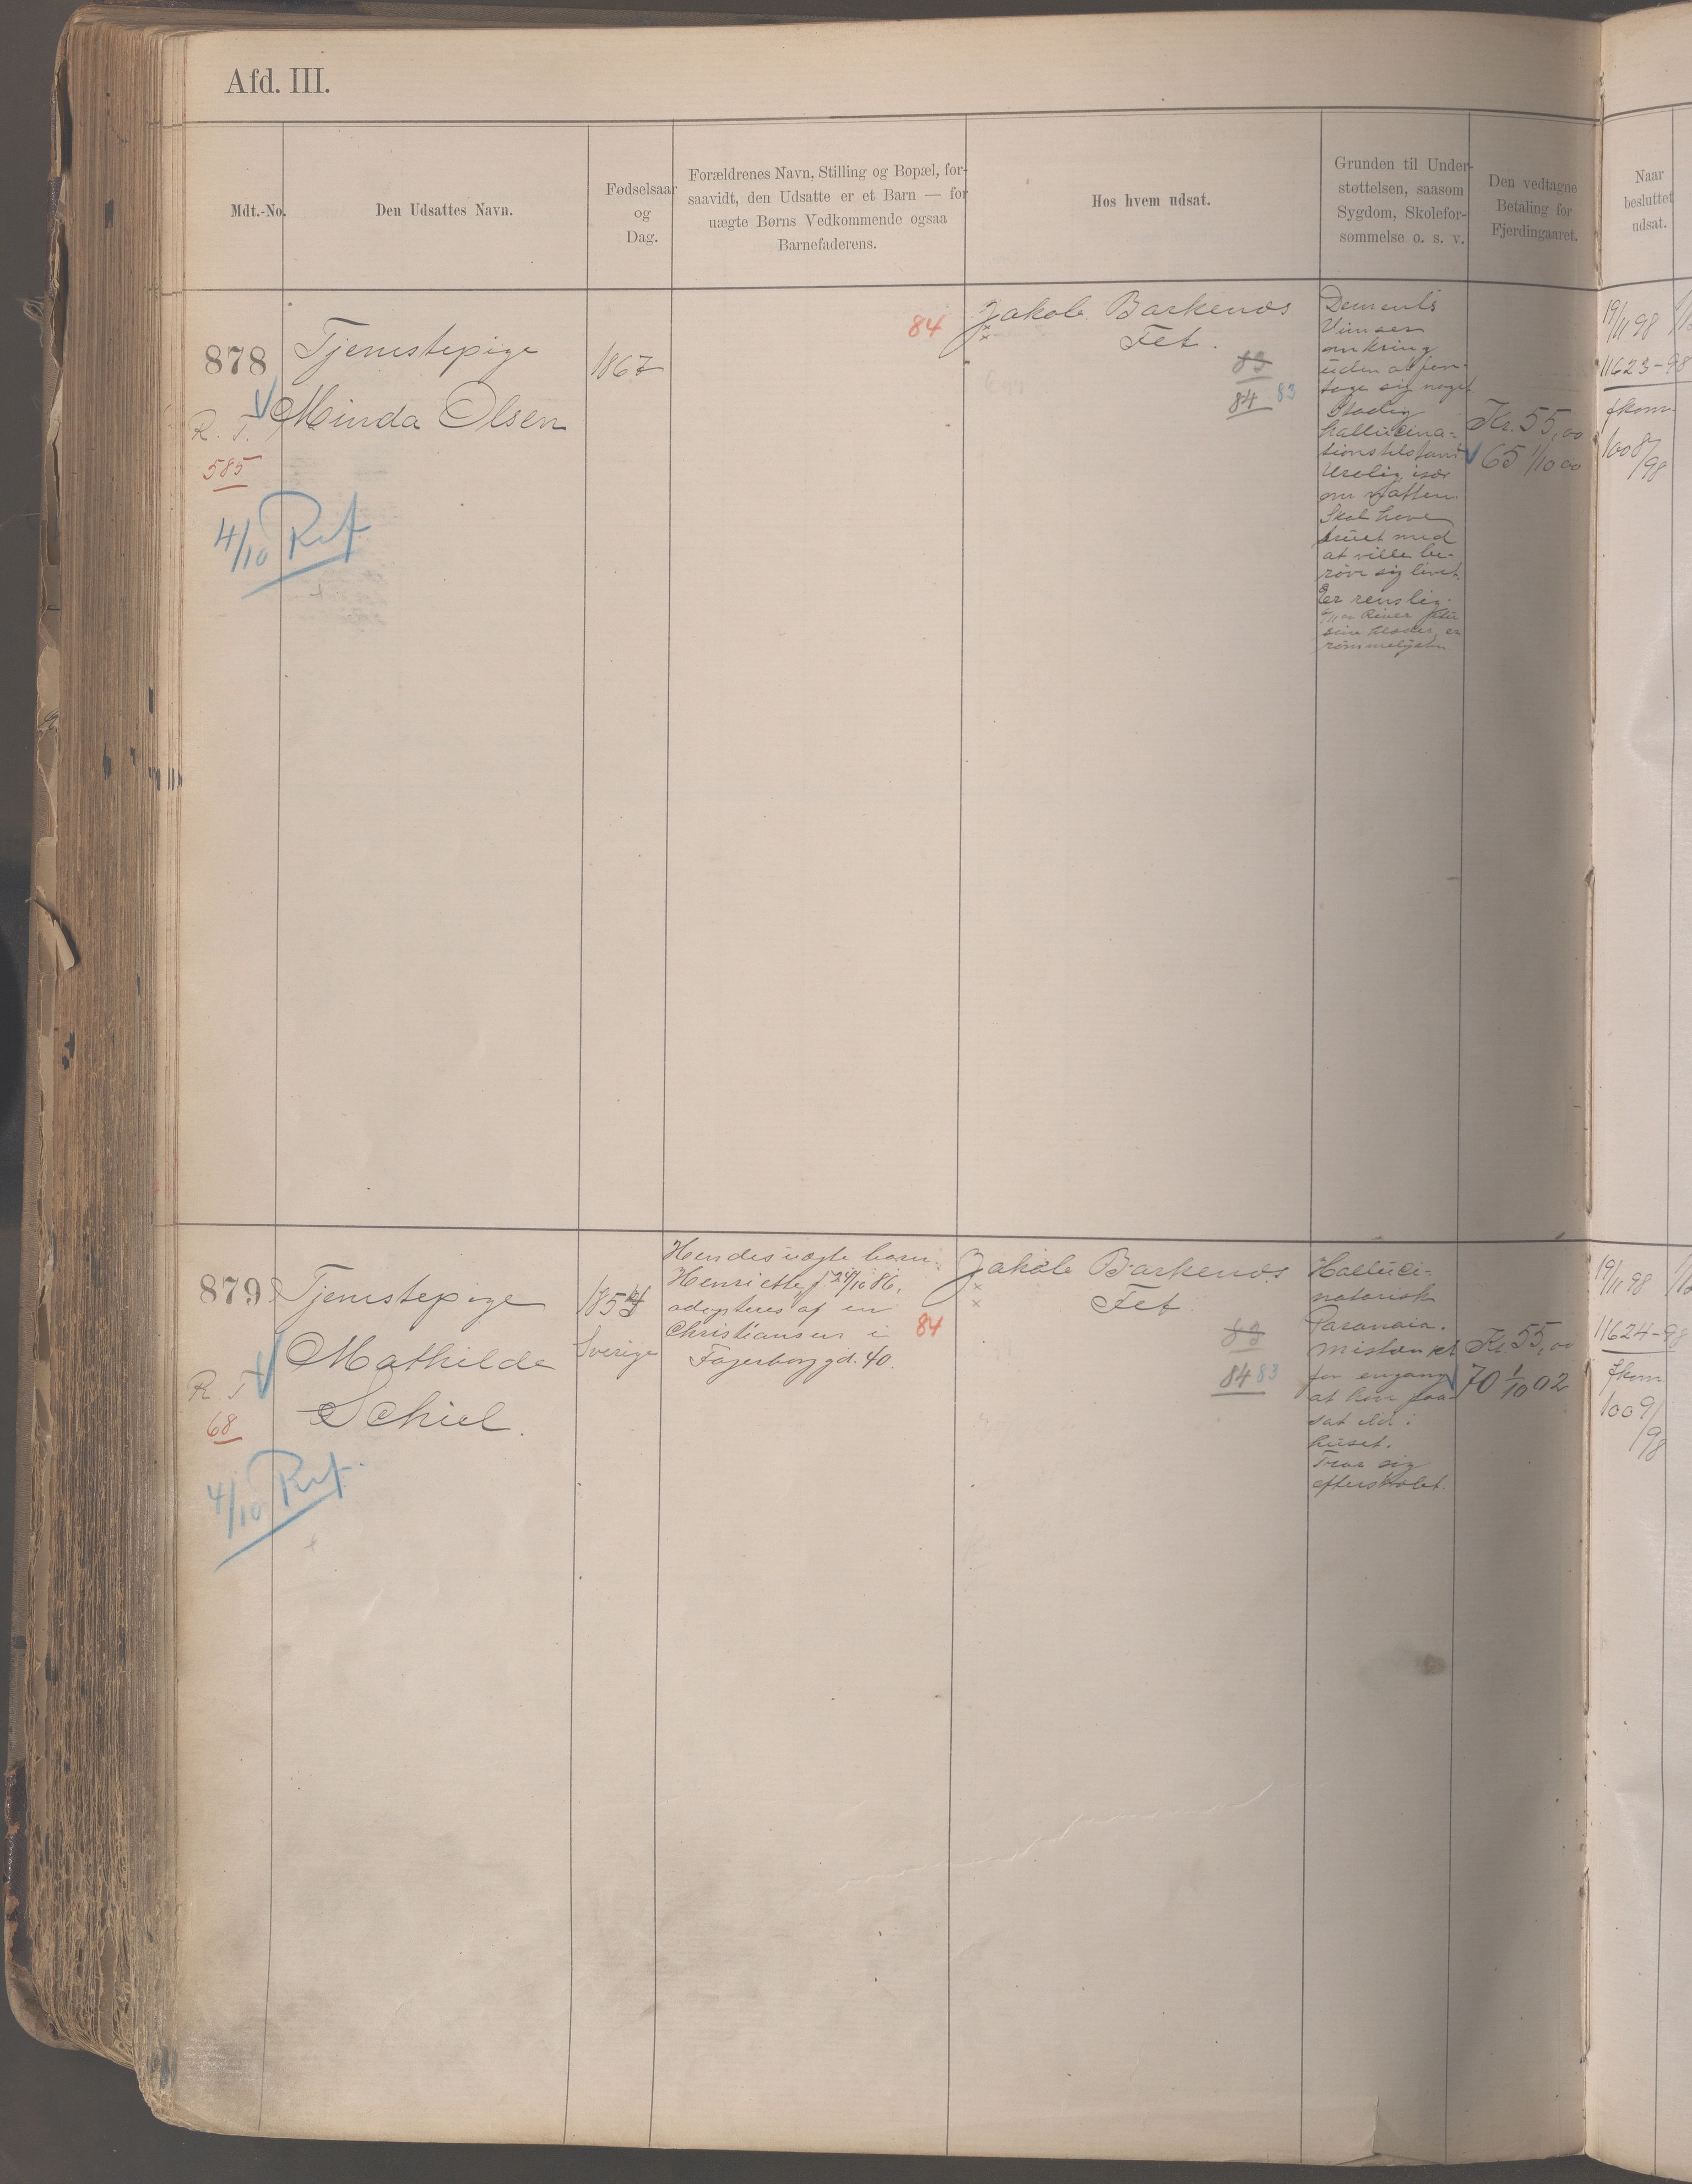 Afd. III.
Mdt.-No.
Den Udsattes Navn.
Fødselsaar
og
Dag.
Forældrenes Navn, Stilling og Bopæl, for-
saavidt, den Udsatte er et Barn — for
uægte Børns Vedkommende ogsaa
Barnefaderens.
Hos hvem udsat.
Grunden til Under-
støttelsen, saasom
Sygdom, Skolefor-
sømmelse o. s. v.
Den vedtagne
Betaling for
Fjerdingaaret.
Naar
besluttet
udsat.
878
R. T.
585
4/10 Ret
Tjenestepige
Minda Olsen
1867
84
Jakob Barkenæs
Fet.
83
84 83
Dements
Vimser
omkring
uden at fore-
tage sig noget
Stadig
hallucina-
tionstilstand
Urolig især
om natten.
Skal have
truet med
at ville be-
røve sig livet.
Er renslig.
sine klæder, er
Kr. 55,00
65 1/10 00
19/11 98
11623-98
fkom.
1008/98
879
R. T.
68
4/10 Ret.
Tjenestepige
Mathilde
Schiel.
Sverige
Hendes uægte barn
Henriette f. 24/10 86,
adopteres af en
Christiansen i
Fagerborggd. 40.
84
Jakob Barkenæs
Fet
83
84 83
Halluci-
natorisk
Paranoia.
mistænkt
for engang
at have paa-
sat ild i
huset.
Tror sig
efterstræbt.
Kr. 55,00
70 1/10 02
19/11 98
11624-98
fkom
1009/98